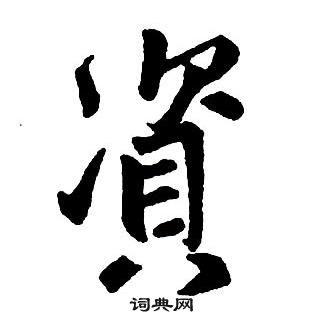 資
词典网